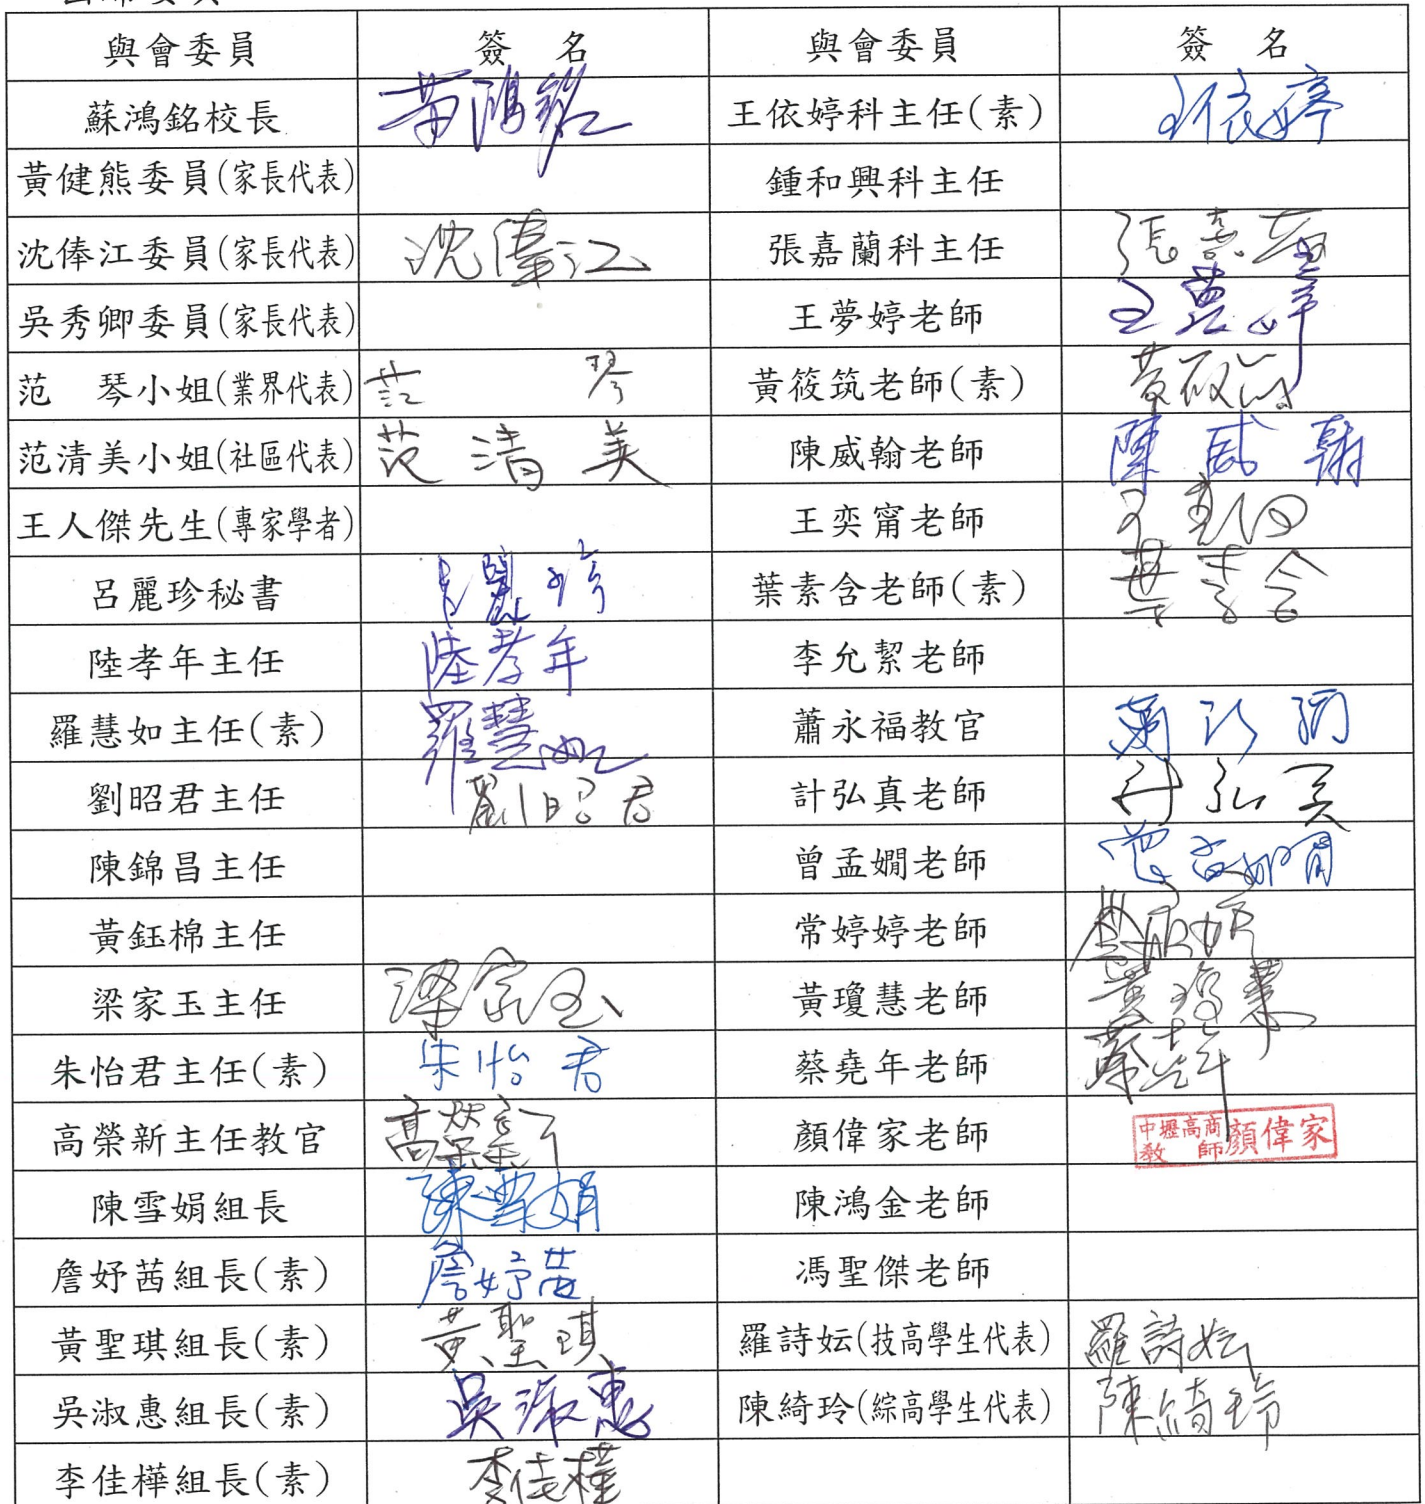 與會委員 簽 名 與會委員 簽 名
蘇鴻銘校長 王依婷科主任(素) 王依婷
黃健熊委員(家長代表) 鍾和興科主任
沈俸江委員(家長代表) 沈俸江 張嘉蘭科主任 張嘉蘭
吳秀卿委員(家長代表) 王夢婷老師 王夢婷
范 琴小姐(業界代表) 范 琴 黃筱筑老師(素) 黃筱筑
范清美小姐(社區代表) 范清美 陳威翰老師 陳威翰
王人傑先生(專家學者) 王奕甯老師
呂麗珍秘書 呂麗珍 葉素含老師(素) 葉素含
陸孝年主任 陸孝年 李允絜老師
羅慧如主任(素) 羅慧如 蕭永福教官
劉昭君主任 劉昭君 計弘真老師 計弘真
陳錦昌主任 曾孟嫺老師 曾孟嫺
黃鈺棉主任 常婷婷老師
梁家玉主任 梁家玉 黃瓊慧老師 黃瓊慧
朱怡君主任(素) 朱怡君 蔡堯年老師 蔡堯年
高榮新主任教官 高榮新 顏偉家老師 中壢高商教師顏偉家
陳雪娟組長 陳雪娟 陳鴻金老師
詹妤茜組長(素) 詹妤茜 馮聖傑老師
黃聖琪組長(素) 黃聖琪 羅詩妘(技高學生代表) 羅詩妘
吳淑惠組長(素) 吳淑惠 陳綺玲(綜高學生代表) 陳綺玲
李佳樺組長(素) 李佳樺